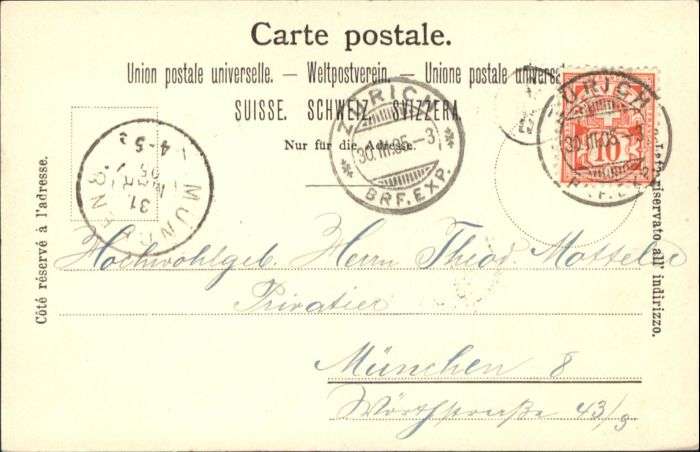 Carte postale.
Union postale universelle. — Weltpostverein. — Unione postale univers
SUISSE. SCHWEIZ. SVIZZERA.
Nur für die Adresse.
ZÜRICH
30.III.05.-3
BRF.EXP.
ZÜRICH
30.III.05.
BRF.EXP.
10
MÜNCHEN
31
4-5
Côté réservé à l'adresse.
Lato riservato all' indirizzo.
Hochwohlgeb. Herrn Theod. Motteler
Privatier
München 8
Wörthstraße 43/3